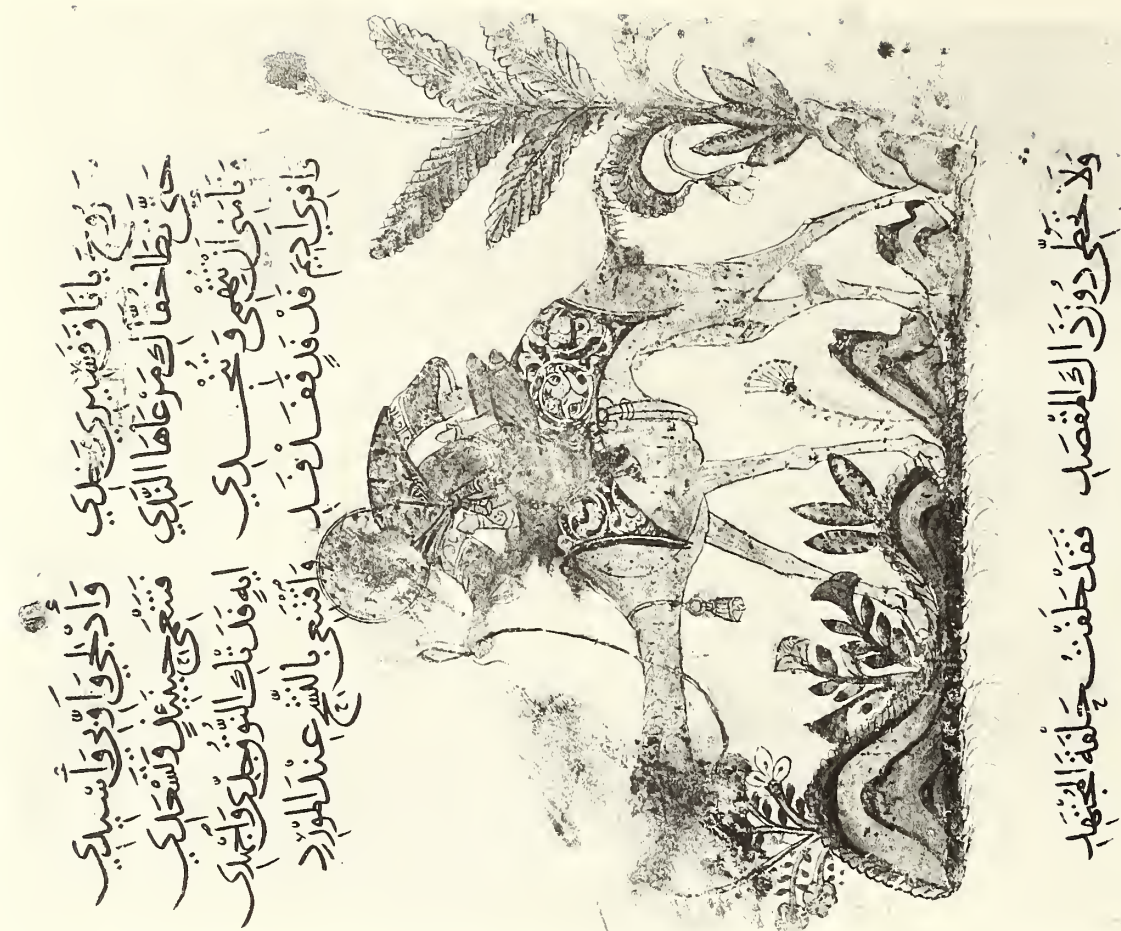 سَرُوجَ يَا نَاقَ فَسِيرِي وَخِدِي وَأَدْلِجِي وَأَوِّبِي وَأَسْئِدِي
حَتَّى تَطَا خُفَّاكِ مَرْعَاهَا النَّدِي فَتَنْعَمِي حِينَئِذٍ وَتَسْعَدِي
وَتَأْمَنِي أَنْ تُتْهِمِي وَتُنْجِدِي إِيهِ فَدَتْكِ النُّوقُ جِدِّي وَاجْهَدِي
وَافْرِي أَدِيمَ فَدْفَدٍ فَفَدْفَدِ وَاقْتَنِعِي بِالنَّشْحِ عِنْدَ الْمَوْرِدِ
وَلَا تَحُطِّي دُونَ ذَاكَ الْمَقْصَدِ فَقَدْ حَلَفْتُ حَلْفَةَ الْمُجْتَهِدِ